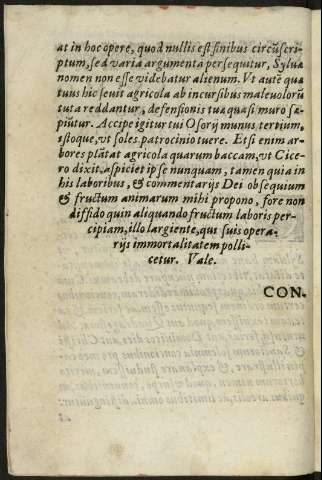 at in hoc opere, quod nullis est finibus circũscri-
ptum, sed varia argumenta persequitur, Syluæ
nomen non esse videbatur alienum. Vt autẽ quæ
tuus hic seuit agricola ab incursibus maleuolorũ
tuta reddantur, defensionis tuæ quasi muro sæ-
piũtur. Accipe igitur tui Osorij munus tertium,
istoque, vt soles patrocinio tuere. Etsi enim ar-
bores plãtat agricola quarum baccam, vt Cice-
ro dixit aspiciet ipse nunquam, tamen quia in
his laboribus, & commentarijs Dei obsequium
& fructum animarum mihi propono, fore non
diffido quin aliquando fructum laboris per-
cipiam, illo largiente, qui suis opera-
rijs immortalitatem polli-
cetur. Vale.
CON-